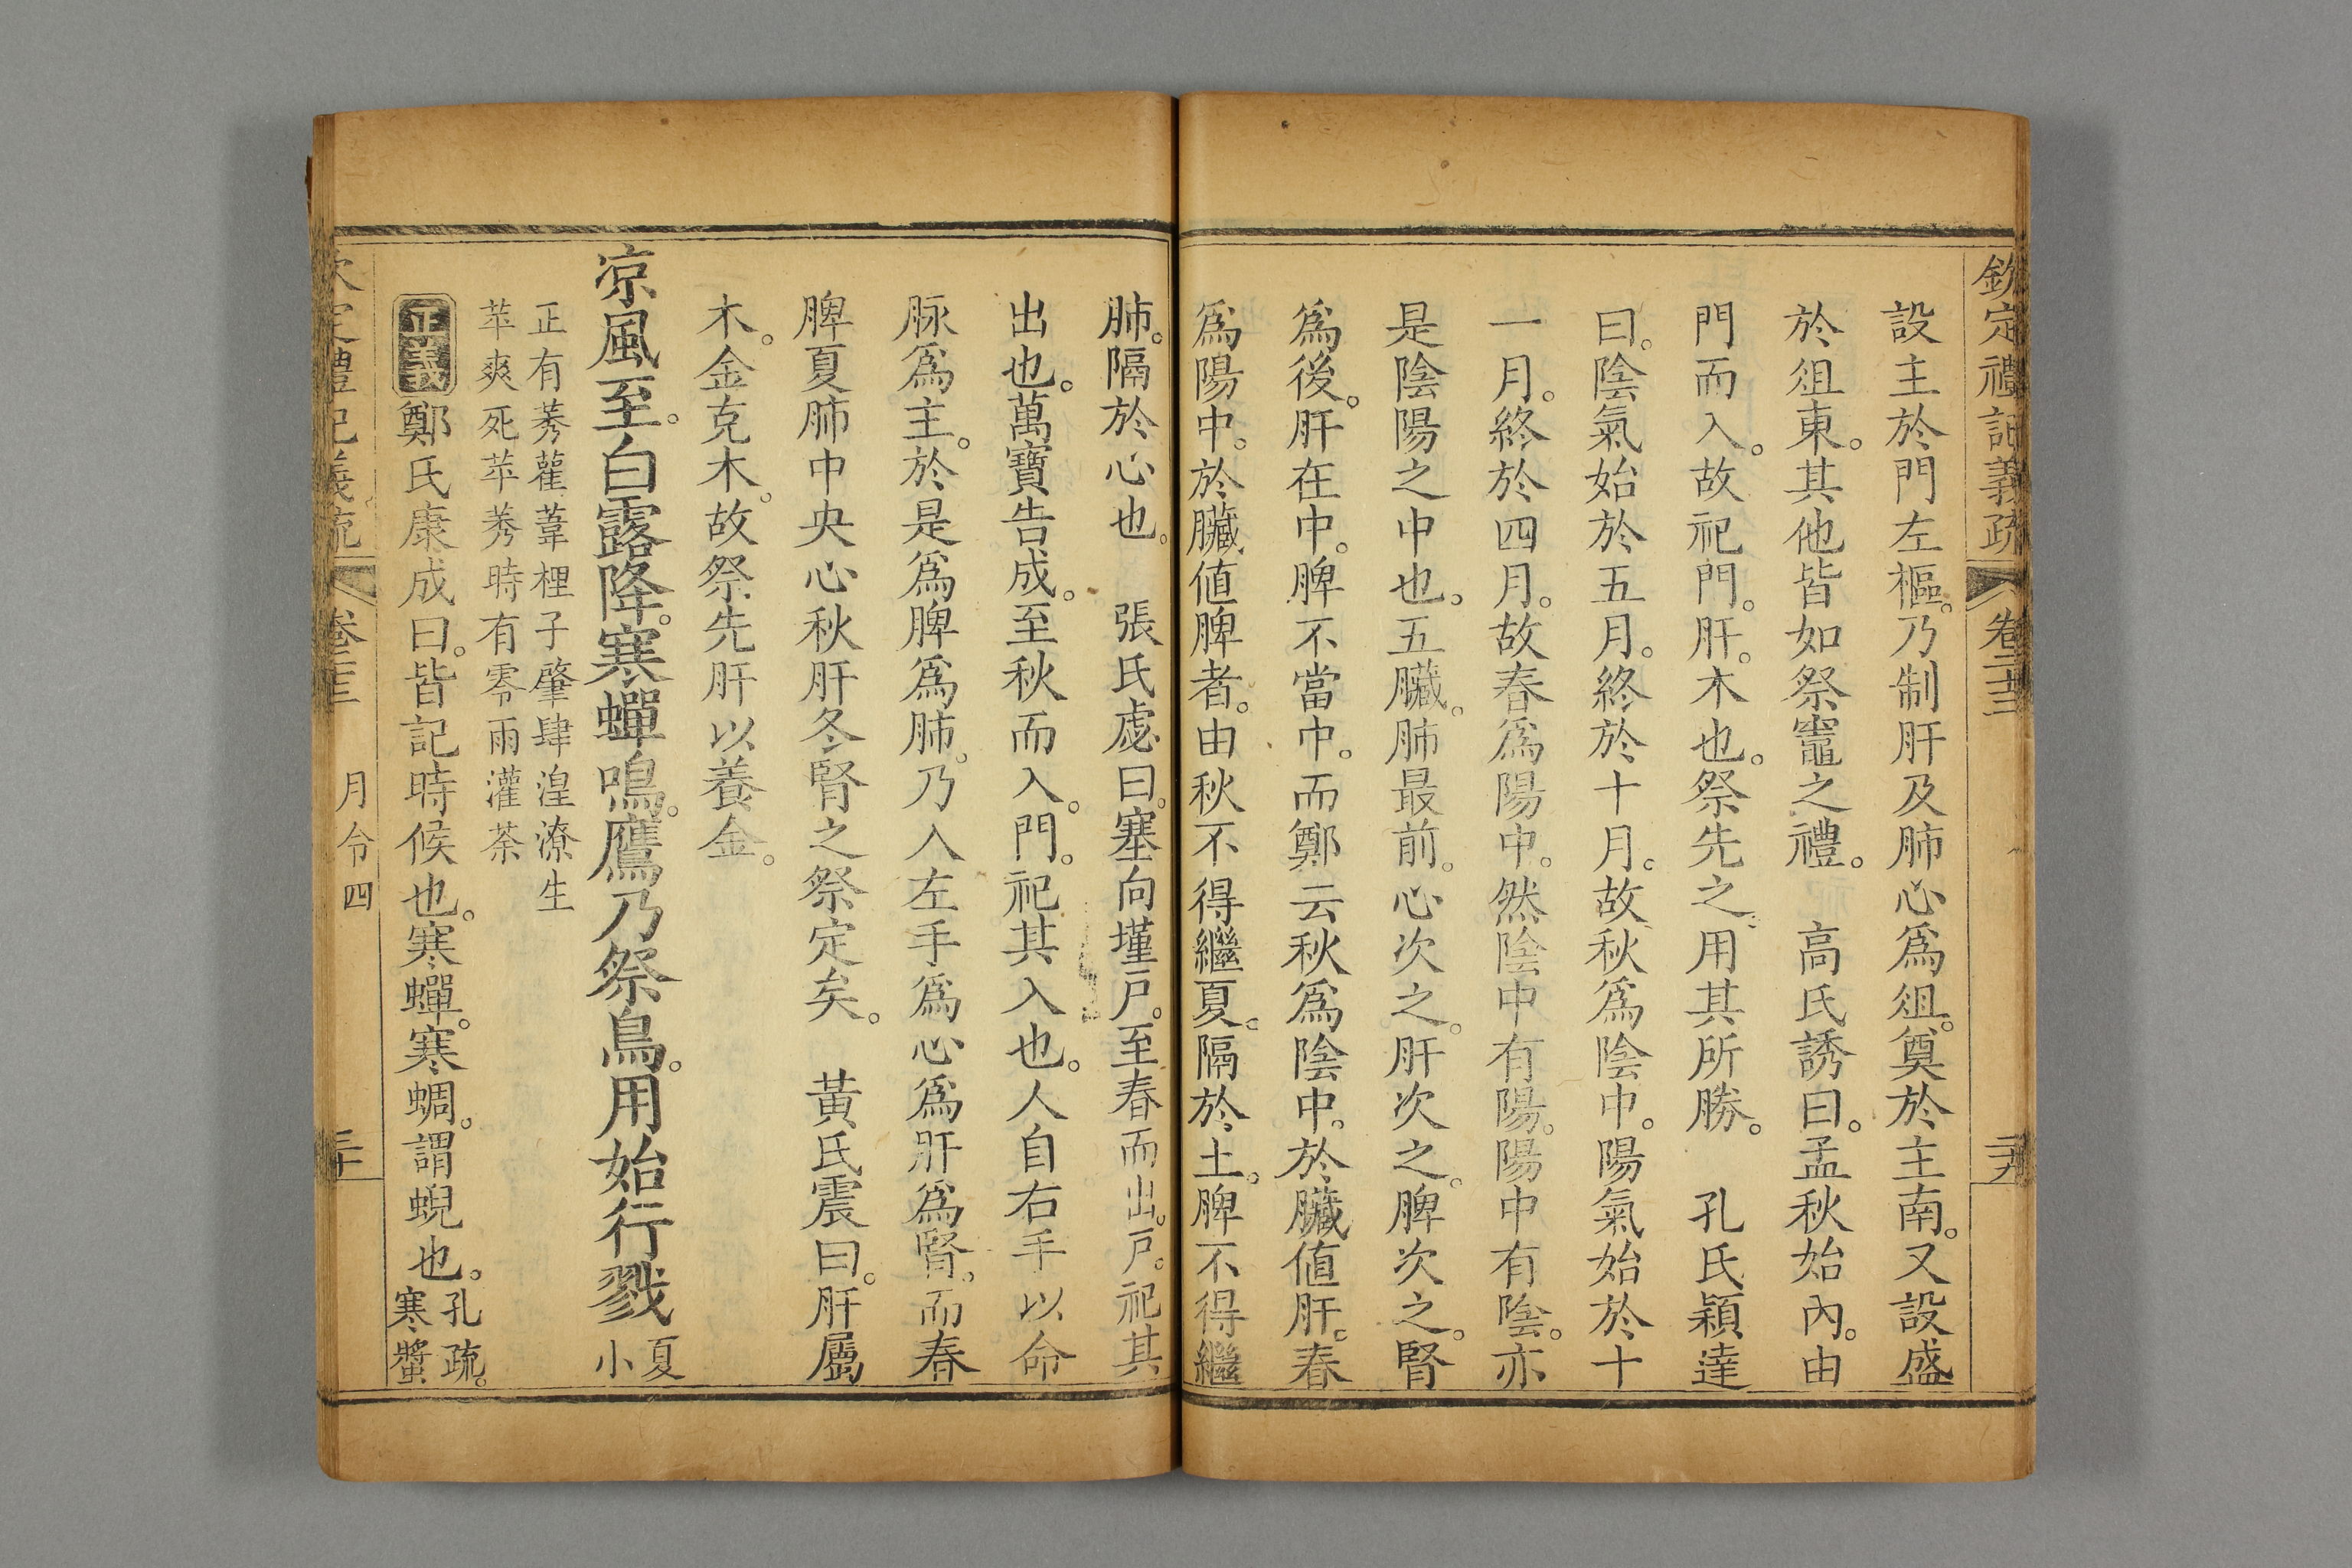 欽定禮記義疏 卷二十三 二十九
設主於門左樞。乃制肝及肺心爲俎。奠於主南。又設盛
於俎東。其他皆如祭竈之禮。 高氏誘曰。孟秋始內。由
門而入。故祀門。肝。木也。祭先之。用其所勝。 孔氏穎達
曰。陰氣始於五月。終於十月。故秋爲陰中。陽氣始於十
一月。終於四月。故春爲陽中。然陰中有陽。陽中有陰。亦
是陰陽之中也。五臟。肺最前。心次之。肝次之。脾次之。腎
爲後。肝在中。脾不當中。而鄭云秋爲陰中。於臟值肝。春
爲陽中。於臟值脾者。由秋不得繼夏。隔於土。脾不得繼
肺。隔於心也。 張氏處曰。塞向墐戶。至春而出。戶。祀其
出也。萬寶告成。至秋而入。門。祀其入也。人自右手以命
脈爲主。於是爲脾爲肺。乃入左手爲心爲肝爲腎。而春
脾夏肺中央心秋肝冬腎之祭定矣。 黃氏震曰。肝屬
木。金克木。故祭先肝以養金。
凉風至。白露降。寒蟬鳴。鷹乃祭鳥。用始行戮夏小
正有莠雚葦狸子肇肆湟潦生
苹爽死苹莠時有霖雨灌荼
正義鄭氏康成曰。皆記時候也。寒蟬。寒蜩。謂蜺也。孔疏。寒螿
欽定禮記義疏 卷二十三 月令四 三十